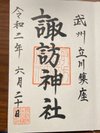 武州立川集座
諏訪神社
令和二年六月二十日